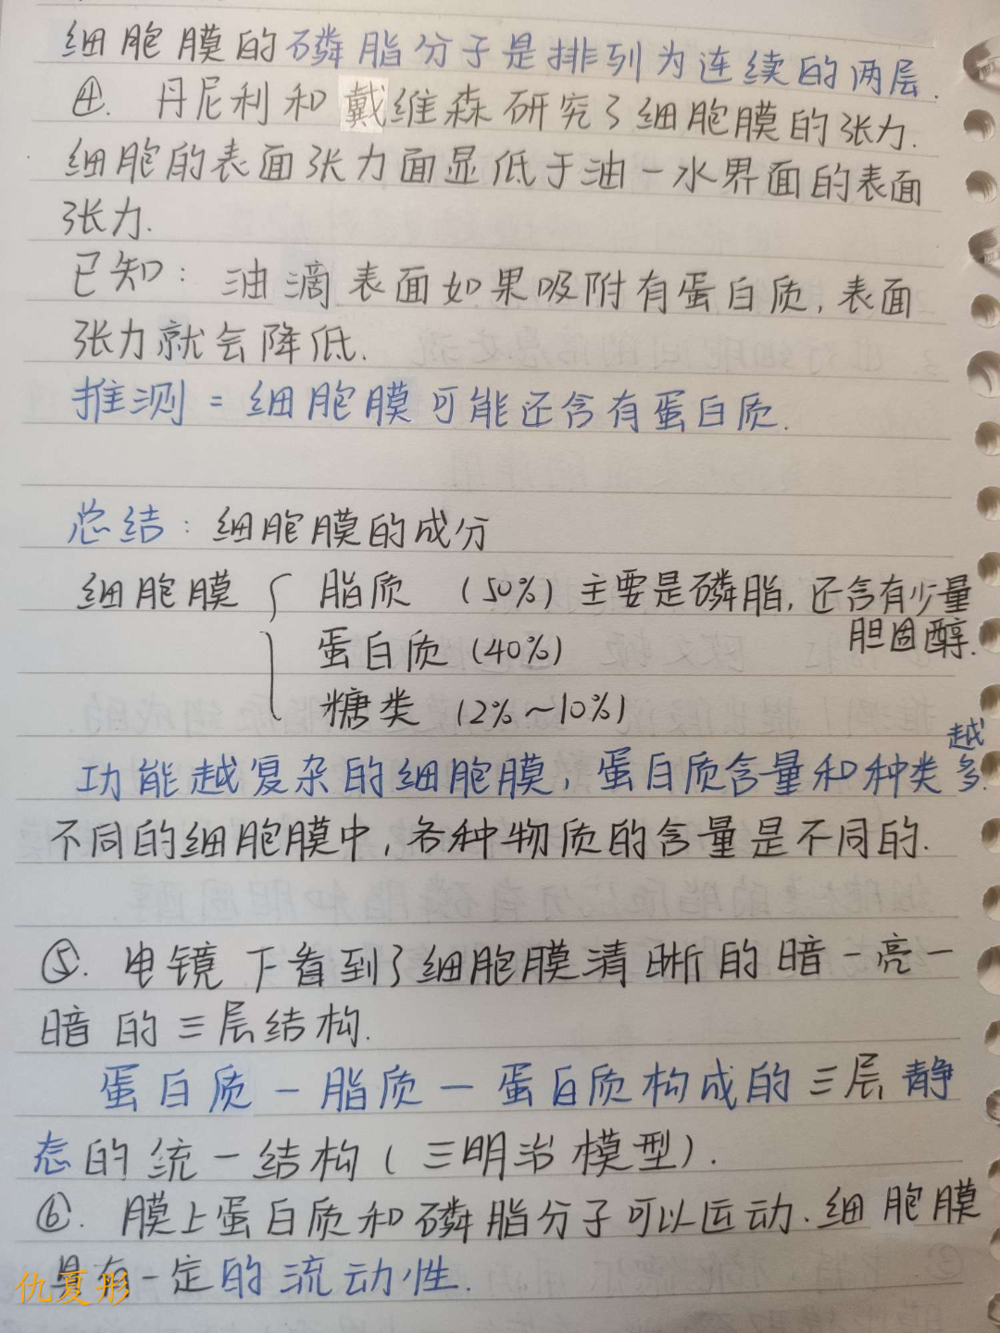 细胞膜的磷脂分子是排列为连续的两层.
④. 丹尼利和戴维森研究了细胞膜的张力.
细胞的表面张力面显低于油一水界面的表面
张力.
已知: 油滴表面如果吸附有蛋白质, 表面
张力就会降低.
推测 = 细胞膜可能还含有蛋白质.
总结: 细胞膜的成分
细胞膜 { 脂质 (50%) 主要是磷脂, 还含有少量
胆固醇.
蛋白质 (40%)
糖类 (2%~10%)
功能越复杂的细胞膜, 蛋白质含量和种类越多.
不同的细胞膜中, 各种物质的含量是不同的.
⑤. 电镜下看到了细胞膜清晰的暗一亮一
暗的三层结构.
蛋白质一脂质一蛋白质构成的三层静
态的统一结构 (三明治模型).
⑥. 膜上蛋白质和磷脂分子可以运动. 细胞膜
具有一定的流动性.
仇夏彤